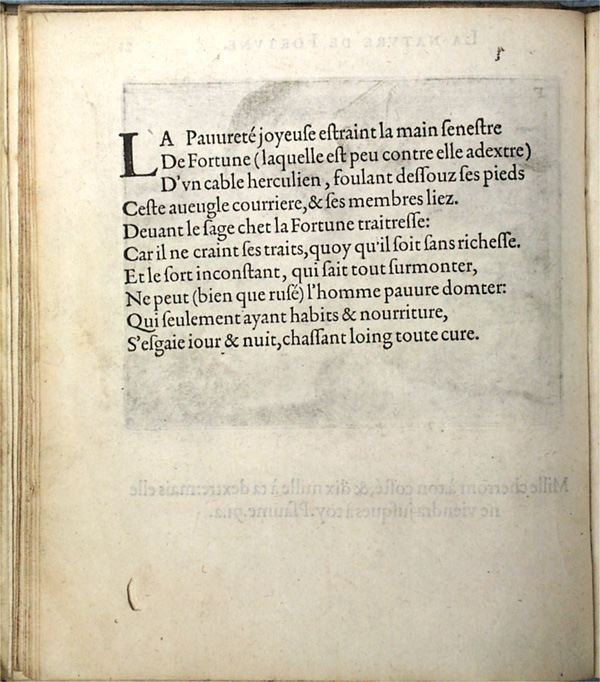 LA Pauureté joyeuſe eſtraint la main ſeneſtre
De Fortune (laquelle eſt peu contre elle adextre)
D'vn cable herculien, foulant deſſouz ſes pieds
Ceſte aueugle courriere, & ſes membres liez.
Deuant le ſage chet la Fortune traitreſſe:
Car il ne craint ſes traits, quoy qu'il ſoit ſans richeſſe.
Et le ſort inconſtant, qui fait tout ſurmonter,
Ne peut (bien que ruſé) l'homme pauure domter:
Qui ſeulement ayant habits & nourriture,
S'eſgaie iour & nuit, chaſſant loing toute cure.